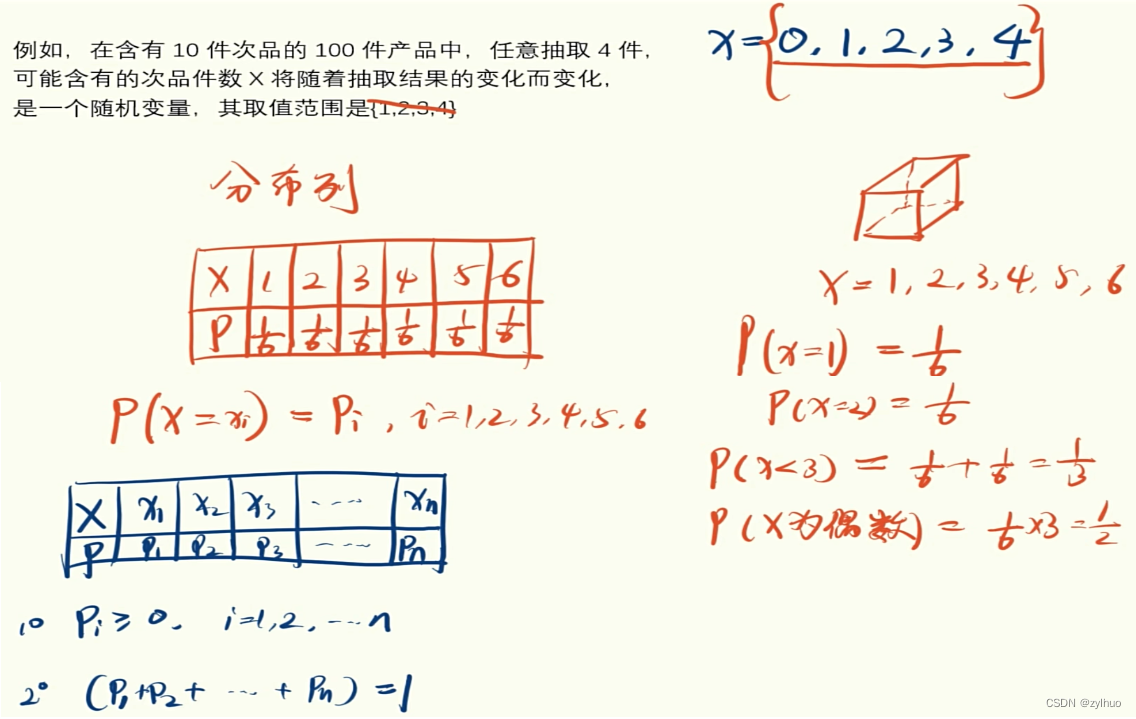 例如，在含有 10 件次品的 100 件产品中，任意抽取 4 件，
可能含有的次品件数 X 将随着抽取结果的变化而变化，
是一个随机变量，其取值范围是{1,2,3,4}
x={0, 1, 2, 3, 4}
分布列
X 1 2 3 4 5 6
P 1/6 1/6 1/6 1/6 1/6 1/6
P(X=xi) = Pi , i=1,2,3,4,5,6
X x1 x2 x3 ...... xn
P P1 P2 P3 ...... Pn
1° Pi ≥ 0, i=1,2, ...n
2° (P1+P2+ ... + Pn) =1
X = 1, 2, 3, 4, 5, 6
P(x=1) = 1/6
P(X=2) = 1/6
P(x<3) = 1/6 + 1/6 = 1/3
P(X为偶数) = 1/6 ×3 = 1/2
CSDN @zylhuo